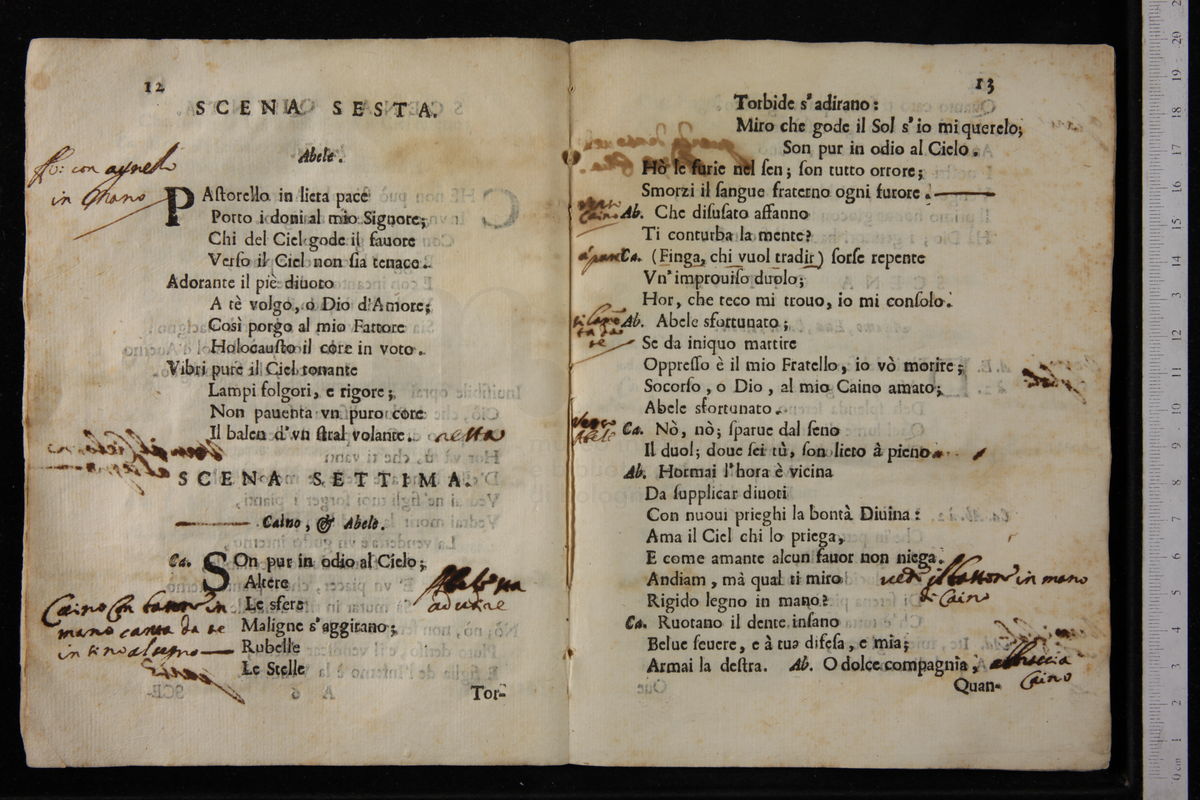 12
SCENA SESTA.
Abele.
con agnell
in mano
PAstorello in lieta pace
Porto i doni al mio Signore;
Chi del Ciel gode il fauore
Verso il Ciel non sia tenace.
Adorante il piè diuoto
A tè volgo, o Dio d'Amore;
Così porgo al mio Fattore
Holocausto il core in voto.
Vibri pure il Ciel tonante
Lampi folgori, e rigore;
Non pauenta vn puro core
Il balen d'vn stral volante. resta
SCENA SETTIMA.
Caino, & Abele.
Ca. SOn pur in odio al Cielo;
Altere
Le sfere
Maligne s'aggirano;
Rubelle
Le Stelle
Caino con bastone in
mano canta da se
in sino al segno
Tor-
13
Torbide s'adirano:
Miro che gode il Sol s'io mi querelo;
Son pur in odio al Cielo.
Hò le furie nel sen; son tutto orrore;
Smorzi il sangue fraterno ogni furore.
verso
Caino
Ab. Che disusato affanno
Ti conturba la mente?
à parte
Ca. (Finga, chi vuol tradir) forse repente
Vn'improuiso duolo;
Hor, che teco mi trouo, io mi consolo.
si lamen
ta da
se
Ab. Abele sfortunato;
Se da iniquo martire
Oppresso è il mio Fratello, io vò morire;
Socorso, o Dio, al mio Caino amato;
Abele sfortunato.
verso
Abele
Ca. Nò, nò; sparue dal seno
Il duol; doue sei tù, son lieto à pieno
Ab. Hormai l'hora è vicina
Da supplicar diuoti
Con nuoui prieghi la bontà Diuina:
Ama il Ciel chi lo priega,
E come amante alcun fauor non niega.
Andiam, mà qual ti miro
Rigido legno in mano?
vede il bastone in mano
di Caino
Ca. Ruotano il dente insano
Belue seuere, e à tua difesa, e mia;
Armai la destra. Ab. O dolce compagnia; abbraccia
Caino
Quan-